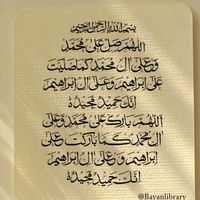 بسم الله الرحمن الرحيم
اللهم صل على محمد
وعلى ال محمد كما صليت
على إبراهيم وعلى ال إبراهيم
إنك حميد مجيد
اللهم بارك على محمد وعلى
ال محمد كما باركت وعلى
إبراهيم وعلى ال إبراهيم
إنك حميد مجيد
@Bayanlibrary